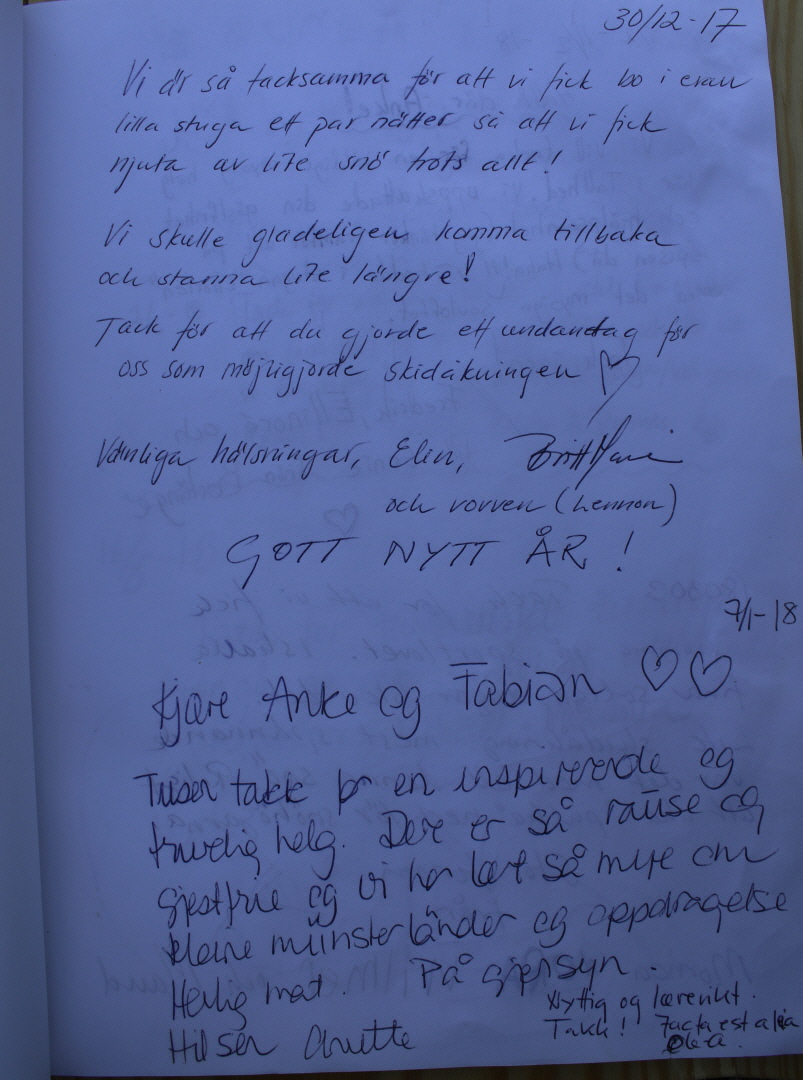 30/12-17
Vi är så tacksamma för att vi fick bo i eran
lilla stuga ett par nätter så att vi fick
njuta av lite snö trots allt!
Vi skulle gladeligen komma tillbaka
och stanna lite längre!
Tack för att du gjorde ett undantag för
oss som möjligjorde skidåkningen
Vänliga hälsningar, Elin, BrittMarie
och vovven (Lennon)
GOTT NYTT ÅR!
7/1-18
Kjære Anke og Fabian
Tusen takk for en inspirerende og
trivelig helg. Dere er så rause og
gjestfrie og vi har lært så mye om
kleine münsterländer og oppdragelse
Herlig mat. På gjensyn.
Nyttig og lærerikt.
Takk! Jacta est alea
Hilsen Anette